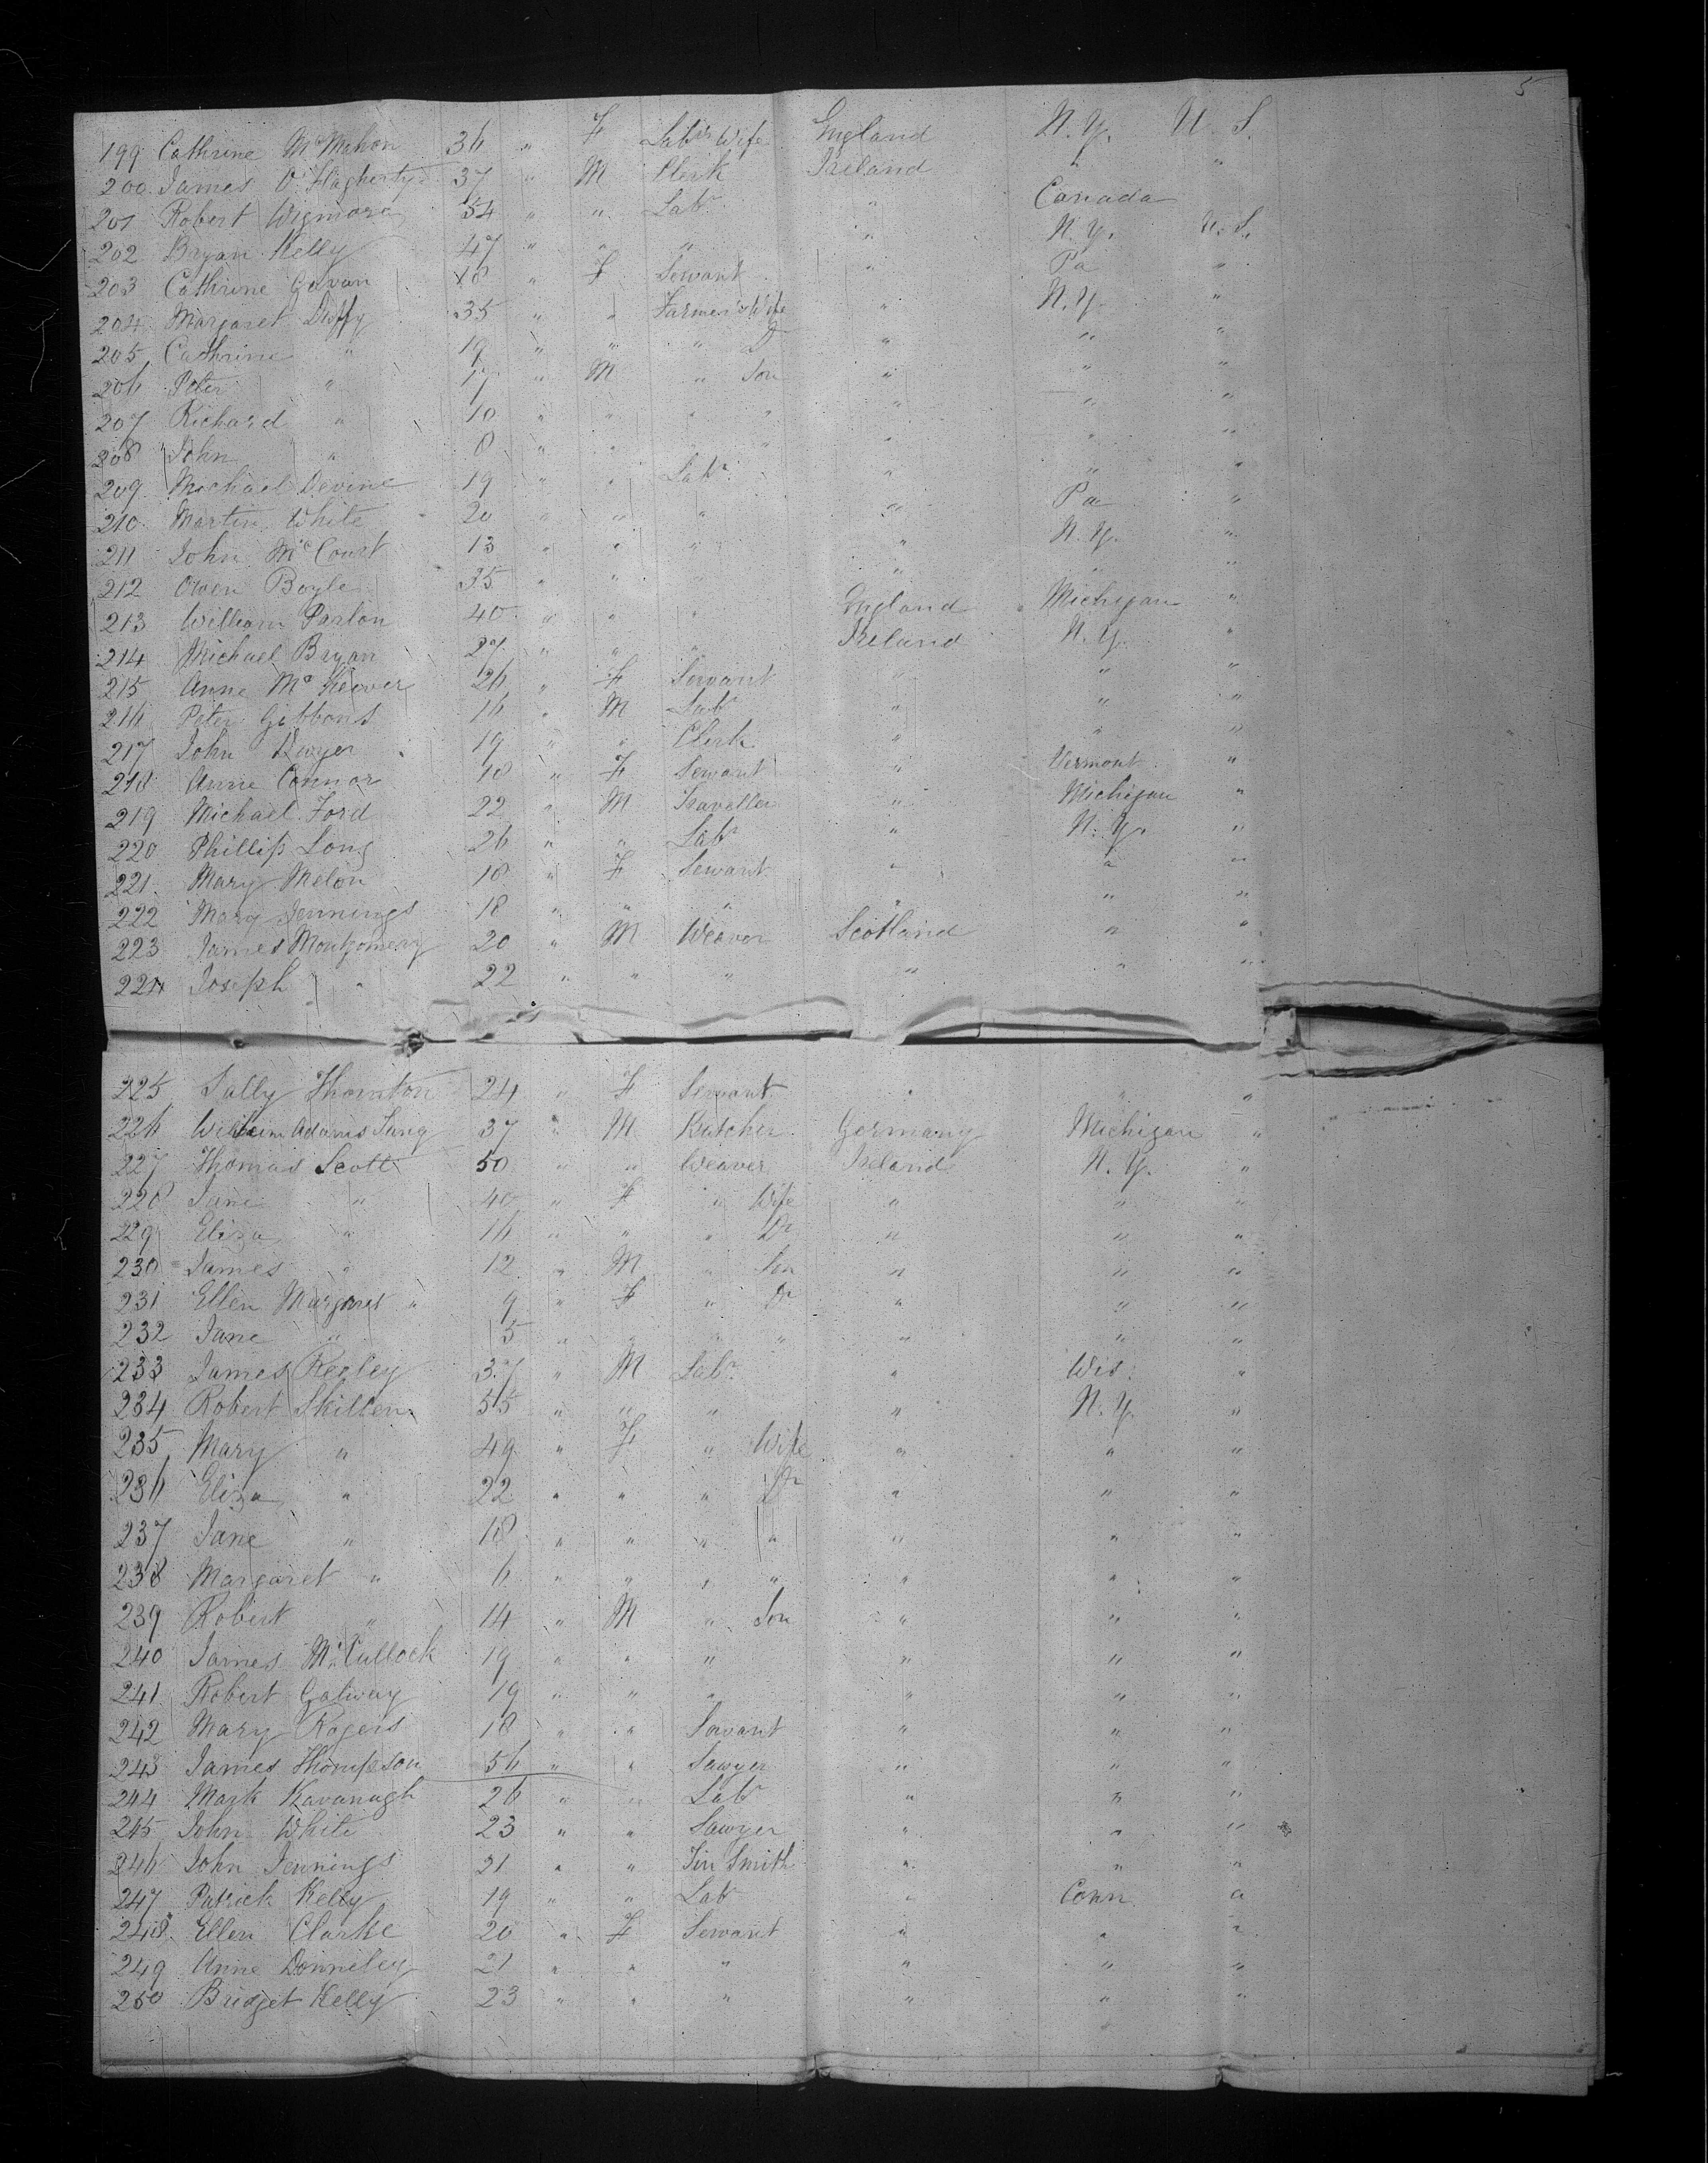 5
199 Cathrine McMahon 36 " F Labrs Wife England N.Y. U. S.
200 James O'Flagherty 37 " M Clerk Ireland " "
201 Robert Wigmore 54 " " Labr " Canada
202 Bryan Kelly 47 " " " " N.Y. U.S.
203 Cathrine Gavan 18 " F Servant " Pa "
204 Margaret Duffy 35 " " Farmer's Wife " N.Y. "
205 Cathrine " 19 " " " D " " "
206 Peter " " M " Son " " "
207 Richard " 10 " " " " " " "
208 John " 8 " " " " " " "
209 Michael Devine 19 " " Labr " " "
210 Martin White 20 " " " " Pa "
211 John McCourt 13 " " " " N.Y. "
212 Owen Boyle 35 " " " " " "
213 William Parlon 40 " " " England Michigan "
214 Michael Bryan 27 " " " Ireland N.Y. "
215 Anne McKeever 26 " F Servant " " "
216 Peter Gibbons 16 " M Labr " " "
217 John Dwyer 19 " " Clerk " " "
218 Anne Connor 18 " F Servant " Vermont "
219 Michael Ford 22 " M Traveller " Michigan "
220 Phillip Long 26 " " Labr " N.Y. "
221 Mary Melon 18 " F Servant " " "
222 Mary Jennings 18 " " " " " "
223 James Montgomery 20 " M Weaver Scotland " "
224 Joseph " 22 " " " " " "
225 Sally Thornton 24 " F Servant " " "
226 Adams 37 " M Butcher Germany Michigan "
227 Thomas Scott 50 " " Weaver Ireland N.Y. "
228 Jane " 40 " F " Wife " " "
229 Eliza " 16 " " " Dr " " "
230 James " 12 " M " Son " " "
231 Ellen Margaret " 9 " F " Dr " " "
232 Jane " 5 " " " " " " "
233 James Regley 37 " M Labr " Wis. "
234 Robert Skillen 55 " " " " N.Y. "
235 Mary " 49 " F " Wife " " "
236 Eliza " 22 " " " Dr " " "
237 Jane " 18 " " " " " " "
238 Margaret " 6 " " " " " " "
239 Robert " 14 " M " Son " " "
240 James McCullock 19 " " " " " "
241 Robert Galway 19 " " " " " "
242 Mary Rogers 18 " " Servant " " "
243 James Thompson 56 " " Sawyer " " "
244 Mark Kavanagh 26 " " Labr " " "
245 John White 23 " " Sawyer " " "
246 John Jennings 21 " " Tin Smith " " "
247 Patrick Kelly 19 " " Labr " Conn "
248 Ellen Clarke 20 " F Servant " " "
249 Anne Donneley 21 " " " " " "
250 Bridget Kelly 23 " " " " " "